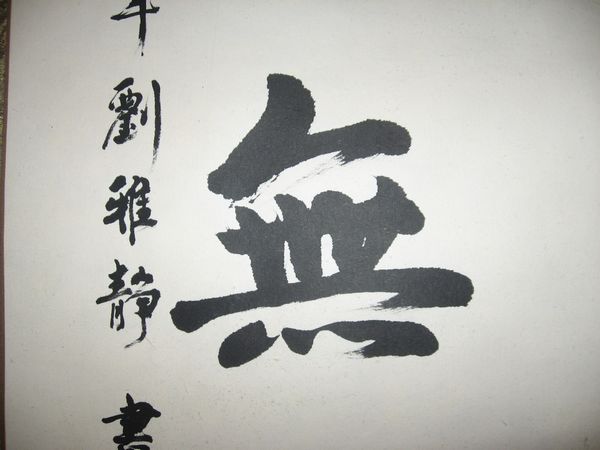 無
年劉雅靜書